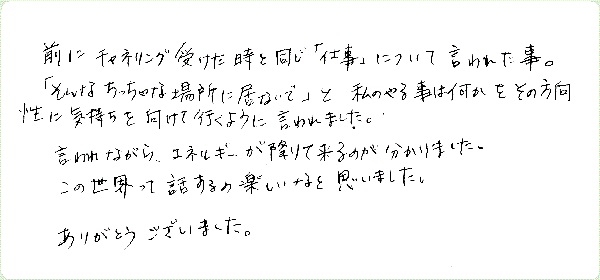 前にチャネリング受けた時と同じ「仕事」について言われた事。
「そんなちっちゃな場所に居ないで」と 私のやる事は何かをその方向
性に気持ちを向けて行くように言われました。
言われながら、エネルギーが降りて来るのが分かりました。
この世界って話するの楽しいなと思いました。
ありがとうございました。